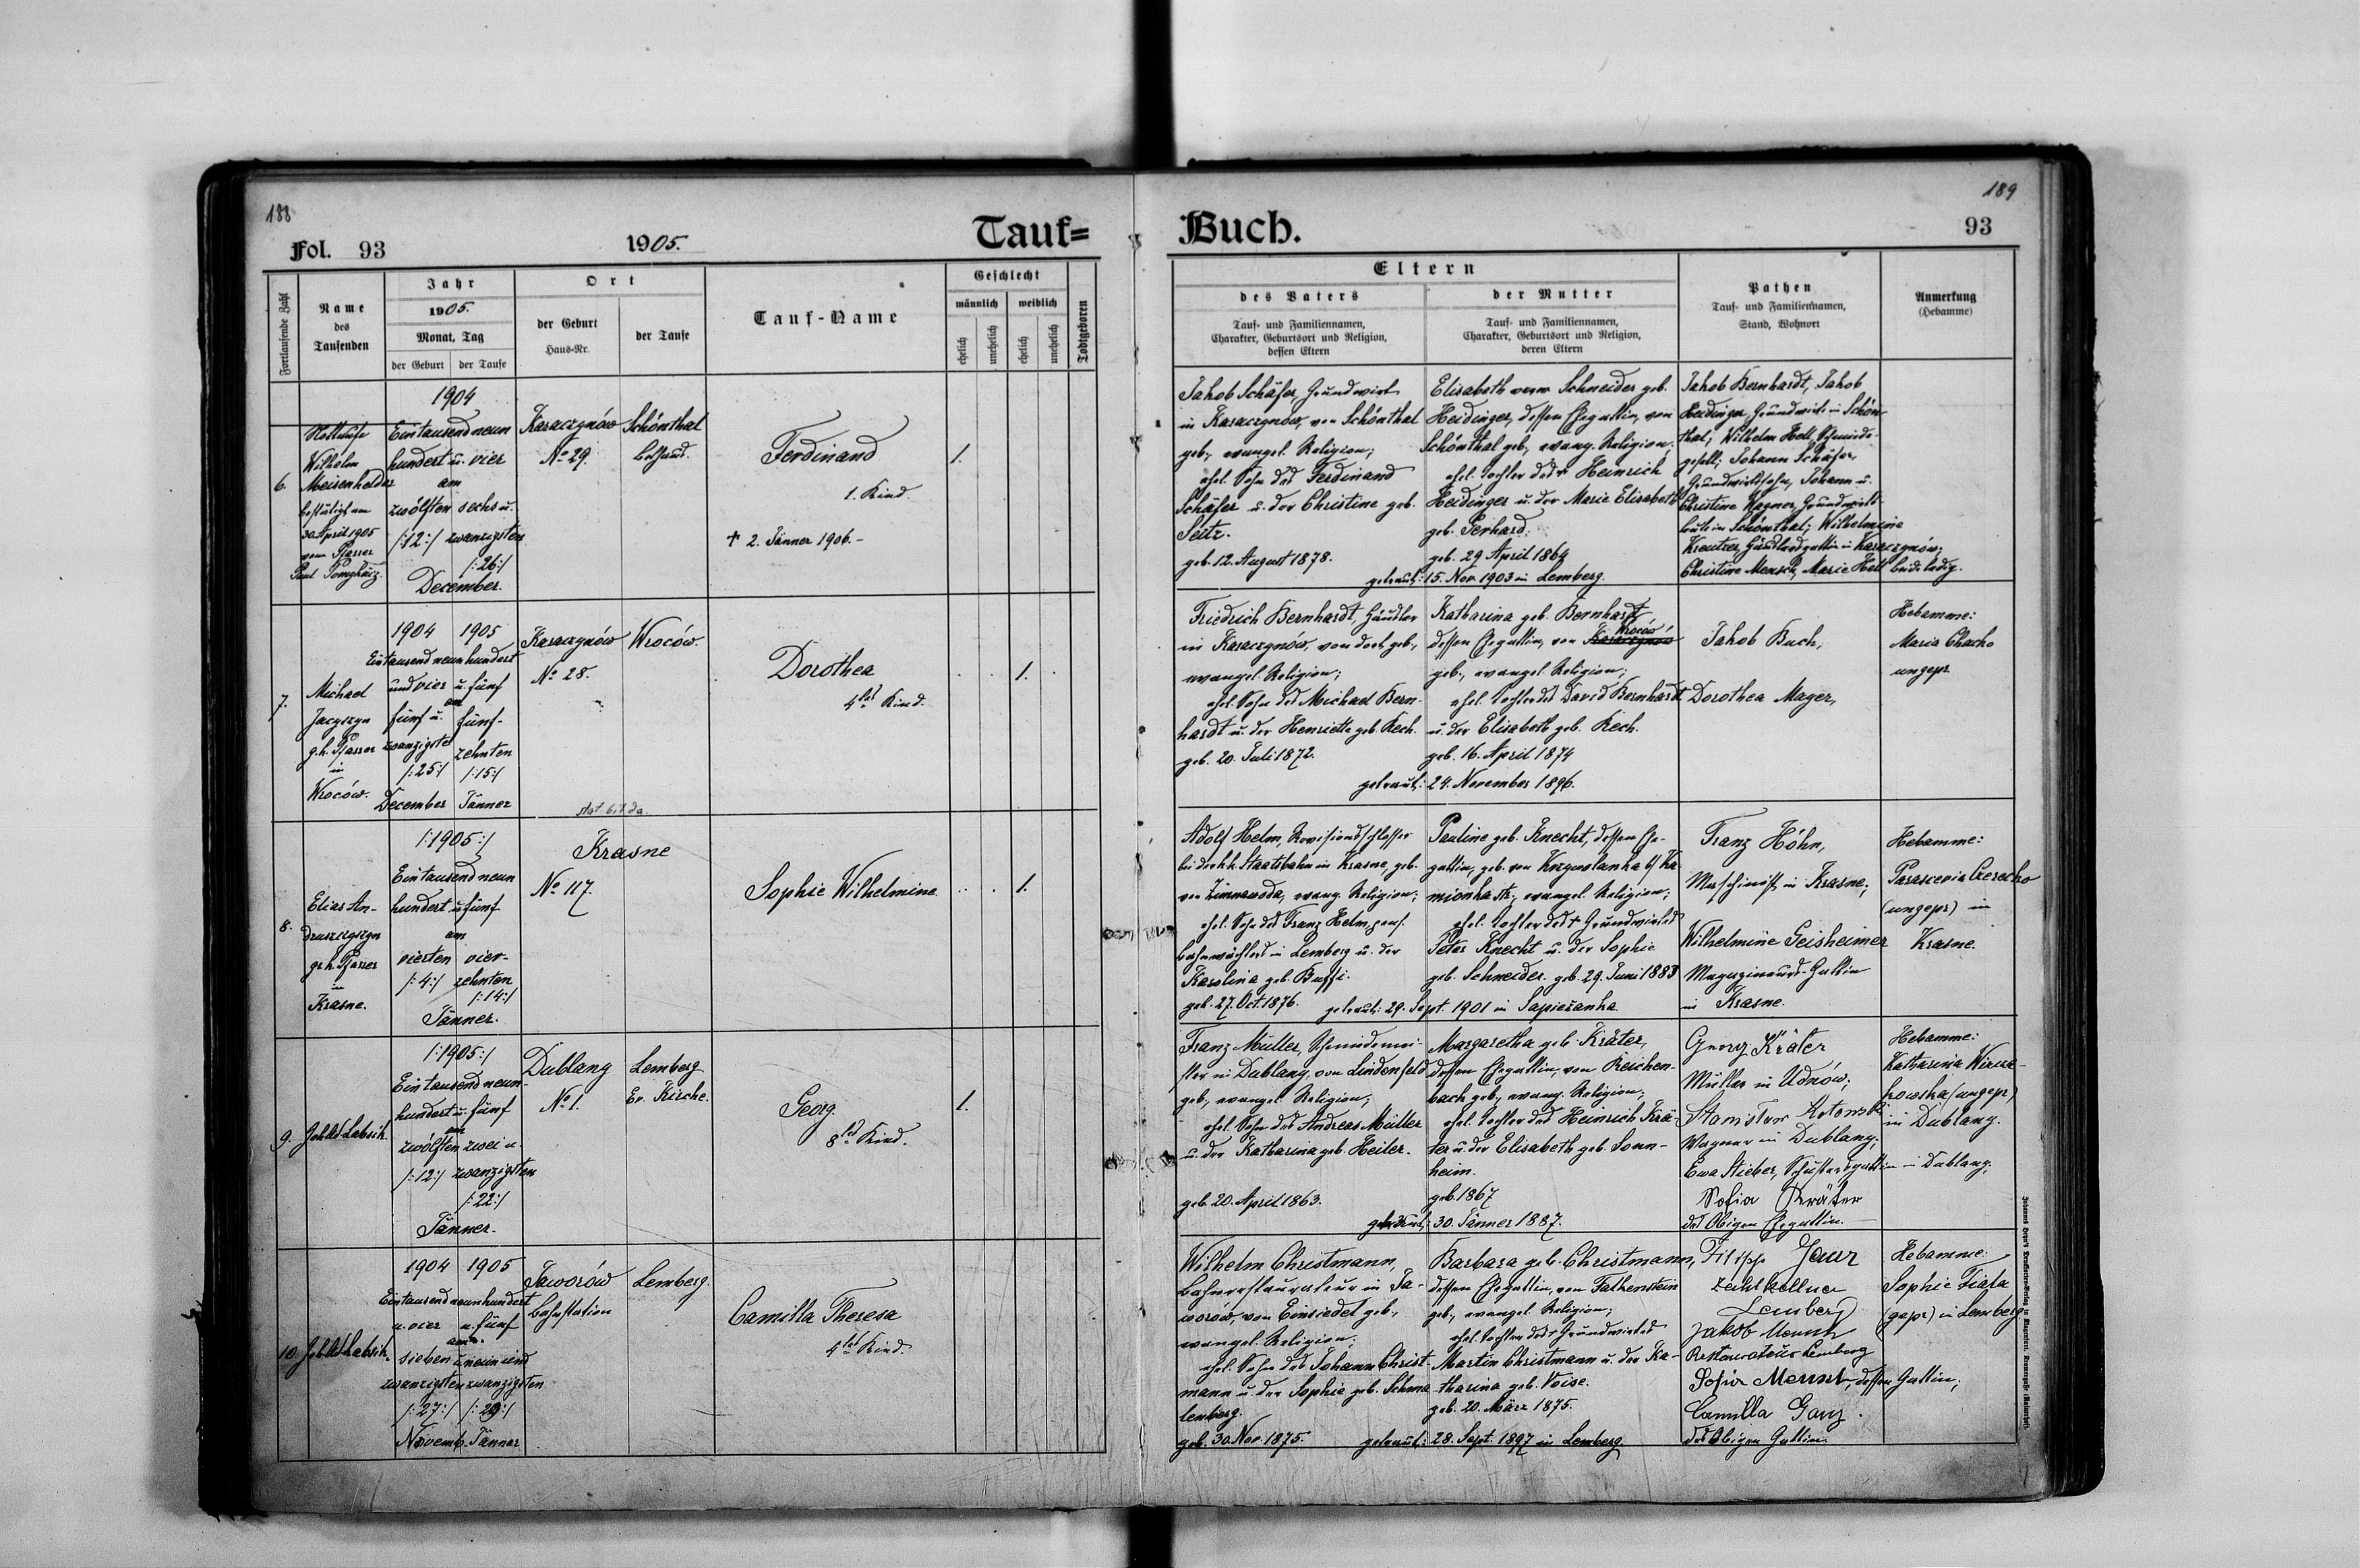 188
Fol. 93
1905.
Tauf=
Fortlaufende Zahl
Name
des
Taufenden
Jahr
1905.
Monat, Tag
der Geburt
der Taufe
Ort
der Geburt
Haus-Nr.
der Taufe
Tauf-Name
Geschlecht
männlich
weiblich
ehelich
unehelich
ehelich
unehelich
Todtgeboren
6.
Nottaufe
Wilhelm
Meisenhelder
bestätigt am
30. April 1905
vom Pfarrer
Paul
1904
Eintausend neun
hundert u. vier
am
zwölften sechs u.
/:12:/ zwanzigsten
/:26:/
December.
Karaczynów
No 29.
Schönthal
Bethaus.
Ferdinand
1. Kind.
† 2. Jänner 1906.-
1.
7.
Michael
Jacyszyn
g. k. Pfarrer
in
Wroców.
1904 1905
Eintausend neunhundert
und vier u. fünf
am
fünf u. fünf-
zwanzigsten zehnten
/:25:/ /:15:/
December Jänner
Karaczynów
No 28.
Wroców.
Dorothea
4tes Kind.
1.
8.
Elias An-
druszczyszyn
gr. k. Pfarrer
in
Krasne.
/:1905:/
Eintausend neun
hundert u. fünf
am
vierten vier-
/:4:/ zehnten
/:14:/
Jänner.
Krasne
No 117.
Sophie Wilhelmine
1.
9.
/:1905:/
Eintausend neun-
hundert u. fünf
am
zwölften zwei u.
/:12:/ zwanzigsten
/:22:/
Jänner.
Dublany
No 1.
Lemberg
Ev. Kirche.
Georg.
8tes Kind.
1.
10.
1904 1905
Eintausend neunhundert
u. vier u. fünf
am
sieben u. neun und
zwanzigsten zwanzigsten
/:27:/ /:29:/
Novemb. Jänner
Jaworów
Bahnstation
Lemberg
Camilla Theresa
4tes Kind.
189
Buch.
93
Eltern
des Vaters
Tauf- und Familiennamen,
Charakter, Geburtsort und Religion,
dessen Eltern
der Mutter
Tauf- und Familiennamen,
Charakter, Geburtsort und Religion,
deren Eltern
Pathen
Tauf- und Familiennamen,
Stand, Wohnort
Anmerkung
(Hebamme)
Jakob Schäfer, Grundwirt
in Karaczynów, von Schönthal
geb., evangel. Religion;
ehel. Sohn des Ferdinand
Schäfer u. der Christine geb.
Seitz.
geb. 12. August 1878.
Elisabeth verw. Schneider geb.
Heidinger, dessen Ehegattin, von
Schönthal geb., evang. Religion;
ehel. Tochter des † Heinrich
Heidinger u. der Marie Elisabeth
geb. Gerhard.
geb. 29 April 1869
getraut: 15. Nov. 1903 in Lemberg.
Jakob Bernhardt, Jakob
Heidinger, Grundwirte in Schön-
thal; Wilhelm Hell, Schmiede-
gesell; Johann Schäfer,
Grundwirtssohn, Johann u.
Christine Wagner, Grundwirts-
leute in Schönthal; Wilhelmine
Kreutzer, Grundwirtsgattin in Karaczynów;
Christine Mensch, Marie Hell beide ledig.
Friedrich Bernhardt, Händler
in Karaczynów, von dort geb.,
evangel. Religion;
ehel. Sohn des Michael Bern-
hardt u. der Henriette geb. Kech.
geb. 20. Juli 1872.
Katharina geb. Bernhardt,
Wroców
dessen Ehegattin, von Karaczynów
geb., evangel. Religion;
ehel. Tochter des David Bernhardt
u. der Elisabeth geb. Kech.
geb. 16. April 1874
getraut: 24. November 1896.
Jakob Buch,
Dorothea Mager,
Hebamme:
Maria Chacho
ungepr.
Adolf Helm, Revisionsschlosser
bei der k.k. Staatsbahn in Krasne, geb.
von Zimnawoda, evang. Religion;
ehel. Sohn des Franz Helm, pens.
Bahnwächters in Lemberg u. der
Karolina geb. Buffi.
geb. 27. Oct. 1876.
Pauline geb. Knecht, dessen Ehe-
gattin, geb. von Krzywolanka b/ Ka-
mionka str., evangel. Religion;
ehel. Tochter des † Grundwirtes
Peter Knecht u. der Sophie
geb. Schneider. geb. 29. Juni 1883
getraut: 29. Sept. 1901 in Sapieżanka
Franz Höhn,
Maschinist in Krasne;
Wilhelmine Geisheimer
Magazineurs-Gattin
in Krasne.
Hebamme:
Parascevia Gerecho
(ungepr) in
Krasne.
Franz Müller, Schmiedemei-
ster in Dublany, von Lindenfeld
geb., evangel. Religion;
ehel. Sohn des Andreas Müller
u. der Katharina geb. Heiler.
geb. 20. April 1863.
Margaretha geb. Kräter,
dessen Ehegattin, von Reichen-
bach geb., evang. Religion;
ehel. Tochter des Heinrich Krä-
ter u. der Elisabeth geb. Sonn-
heim.
geb. 1867
getraut: 30. Jänner 1887.
Georg Kräter
Müller in Udnów;
Stanisław Kotowski
Wagner in Dublany;
Ewa Stieber, Schustersgattin in Dublany;
Sofia Kräter
des Obigen Ehegattin.
Hebamme:
Katharina
(ungepr)
in Dublany.
Wilhelm Christmann,
Bahnrestaurateur in Ja-
worów, von Einsiedel geb.,
evangel. Religion;
ehel. Sohn des Johann Christ-
mann u. der Sophie geb. Schma-
lenberg.
geb. 30. Nov. 1875.
Barbara geb. Christmann,
dessen Ehegattin, von Falkenstein
geb., evangel. Religion;
ehel. Tochter des † Grundwirtes
Martin Christmann u. der Ka-
tharina geb. Voise.
geb. 20. März 1875.
getraut: 28. Sept. 1897 in Lemberg.
Filipp
Zahlkellner
Lemberg
Jakob
Restaurateur Lemberg
Sofia dessen Gattin;
Camilla Ganz.
des Obigen Gattin.
Hebamme:
Sophie Fiala
(gepr) in Lemberg